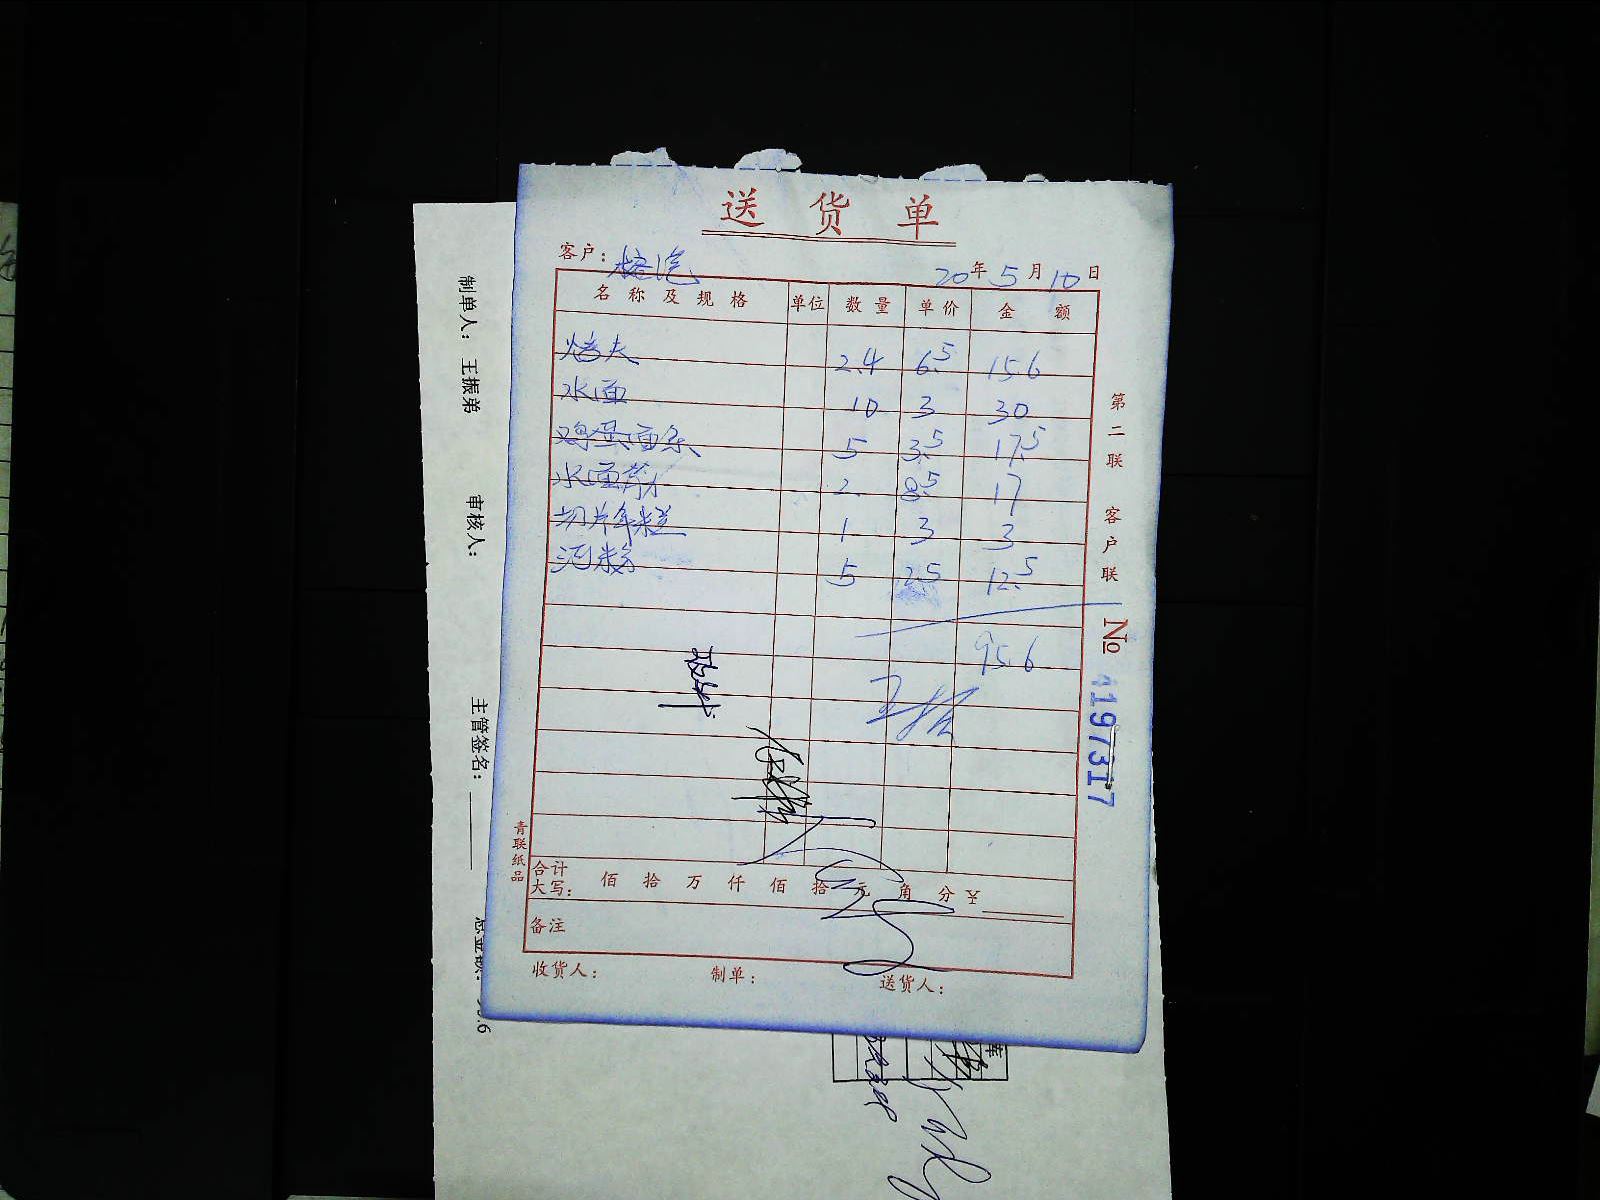 送货单
客户: 20年5月10日
名称及规格 单位 数量 单价 金额
烤夫 2.4 6.5 15.6
水面 10 3 30
鸡蛋面条 5 3.5 17.5
水面筋 2 8.5 17
切片年糕 1 3 3
河粉 5 2.5 12.5
95.6
第二联 客户联
No 4197317
青联纸品
合计大写: 佰 拾 万 仟 佰 拾 元 角 分 ¥
备注
收货人: 制单: 送货人:
制单人: 王振弟
审核人:
主管签名: